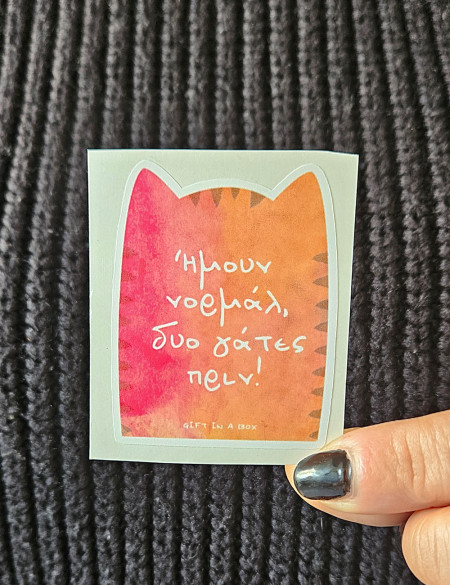 Ήμουν
νορμάλ,
δυο γάτες
πριν!
GIFT IN A BOX